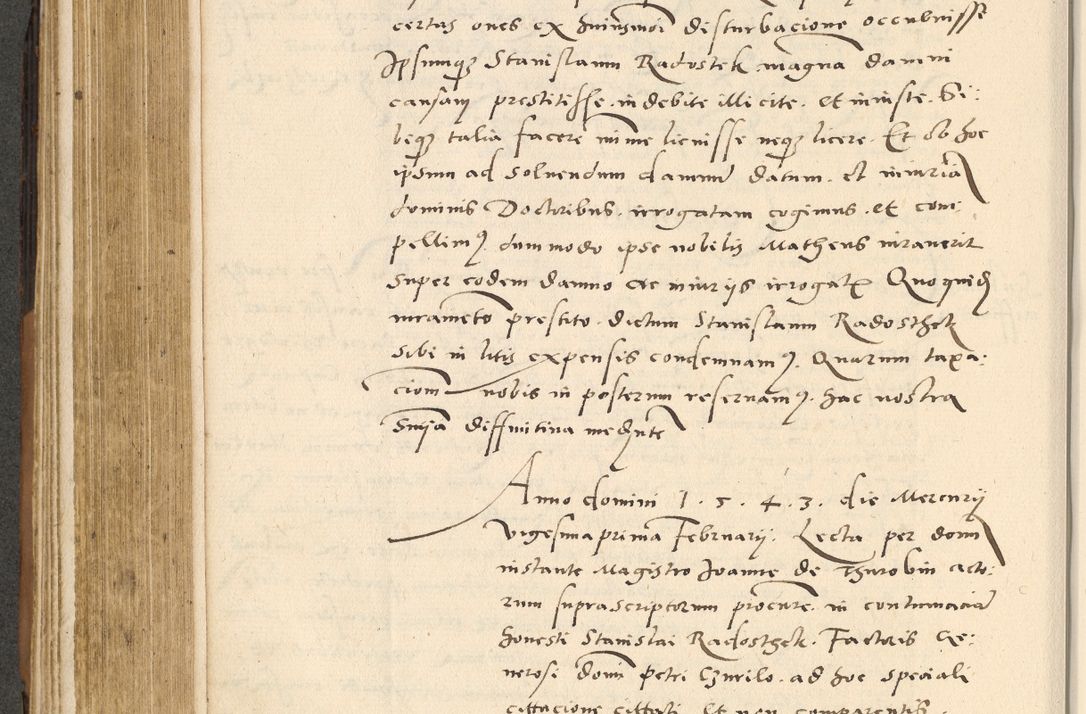 certas oues ex huiusmodi disturbacione occubuisse
Ipsumq3 Stanislaum Radostek magna damni
causam prestitisse. indebite illicite. et iniuste. Si:
biq3 talia facere minime licuisse neq3 licere. Et ob hoc
ipsum ad soluendum damnum datum. et iniuria
dominis Doctoribus. irrogatam cogimus. et com:
pellimus dummodo ipse nobilis Matheus iurauerit
super eodem damno ac iniuriis irrogatis Quoquidem
iuramento prestito. dictum Stanislaum Radosthek
sibi in litis expensis condemnamus. Quarum taxa:
cionem nobis in posterum reseruamus. hac nostra
Sententia diffinitiua mediante
Anno domini 1. 5. 4. 3. die Mercurij
vigesima prima Februarij. Lecta per dominum
instante Magistro Joanne de Thurobin acto:
rum suprascriptorum procuratore. in contumaciam
honesti Stanislai Radosthek. Factoris Ge:
nerosi domini Petri Czurilo. ad hoc speciali
cittacione cittati et non comparentis.